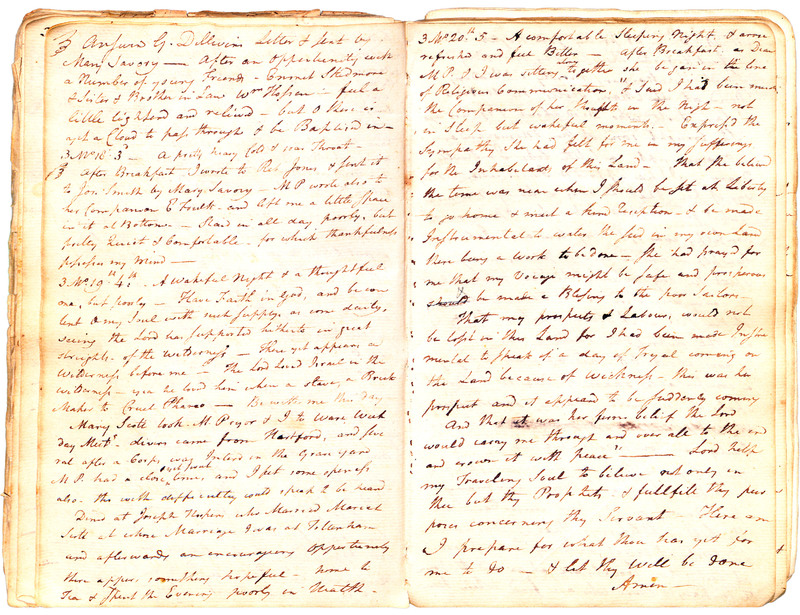 Answer'd G. Dillwins Letter & sent by
Mary Savory — After an Opportunity with
a Number of young Friends — Emmet Skidmore
& Sister & Brother in Law Wm Hopson — feel a
little lightned and relieved — but O there is
a Cloud to pass through & be Baptised in —
3 Mo 18th 3d — A pretty heavy Cold & sore Throat —
After Breakfast I wrote to Reb Jones & sent it
to Jon Smith by Mary Savory — M P wrote also to
her Companion E Foulk — and left me a little space
in it at Bottom — Staid in all day poorly, but
pretty Quiet & Comfortable — for which thankfulness
possesses my Mind —
3 Mo 19th 4th — A wakeful Night & a thoughtful
one, but poorly — Have Faith in God, and be con
tent O my Soul with such supplys as come daily,
seeing the Lord has supported hitherto in great
straights of the wilderness — There yet appears a
Wilderness before me — The Lord Loved Israel in the
wilderness — yea he loved him when a slave, a Brick
Maker to Cruel Pharao — Be with me this day
Mary Scott took M Pryor & I to Ware Week
day Meetg — divers came from Hartford, and seve
ral after a Corps was Inter'd in the Grave yard
M P. had a close time, and I felt some openess
also — tho with difficulty could speak to be heard
Dined at Joseph Hoskins who Married Marcia
Scott at whose Marriage I was at Tottenham
and afterwards an encouraging Opportunity
there appear'd something hopeful — home to
Tea & spent the Evening poorly in Health —
3 Mo 20th 5 — A comfortable Sleeping Night & arose
refreshed and feel Better — After Breakfast as Dear
M P. & I was sitting alone together she began in the line
of Religious Communication, & Said I had been much
the Companion of her Thoughts in the Night — not
in Sleep but wakeful moments — Express'd the
Sympathy She had felt for me in my sufferings
for the Inhabitants of this Land — That she believed
the time was near when I should be set at Liberty
to go home & meet a kind reception — & be made
Instrumental to water the seed in my own Land
there being a work to be done — She had pray'd for
me that my Voyage might be safe and prosperous
should be made a Blessing to the poor Sailors —
That my prospects & Labours, would not
be lost in this Land for I had been made Instru
mental to speak of a day of Tryal coming on
the Land because of Wickness — this was her
prospect and it appeared to be suddenly coming
And that it was her firm belief the Lord
would carry me through and over all to the end
and crown it with peace" — Lord help
my Traveling Soul to believe not only in
thee but thy Prophets, & fullfill thy pur
poses concerning thy Servant — Here am
I prepare for what thou has yet for
me to do — & let thy will be done
Amen —